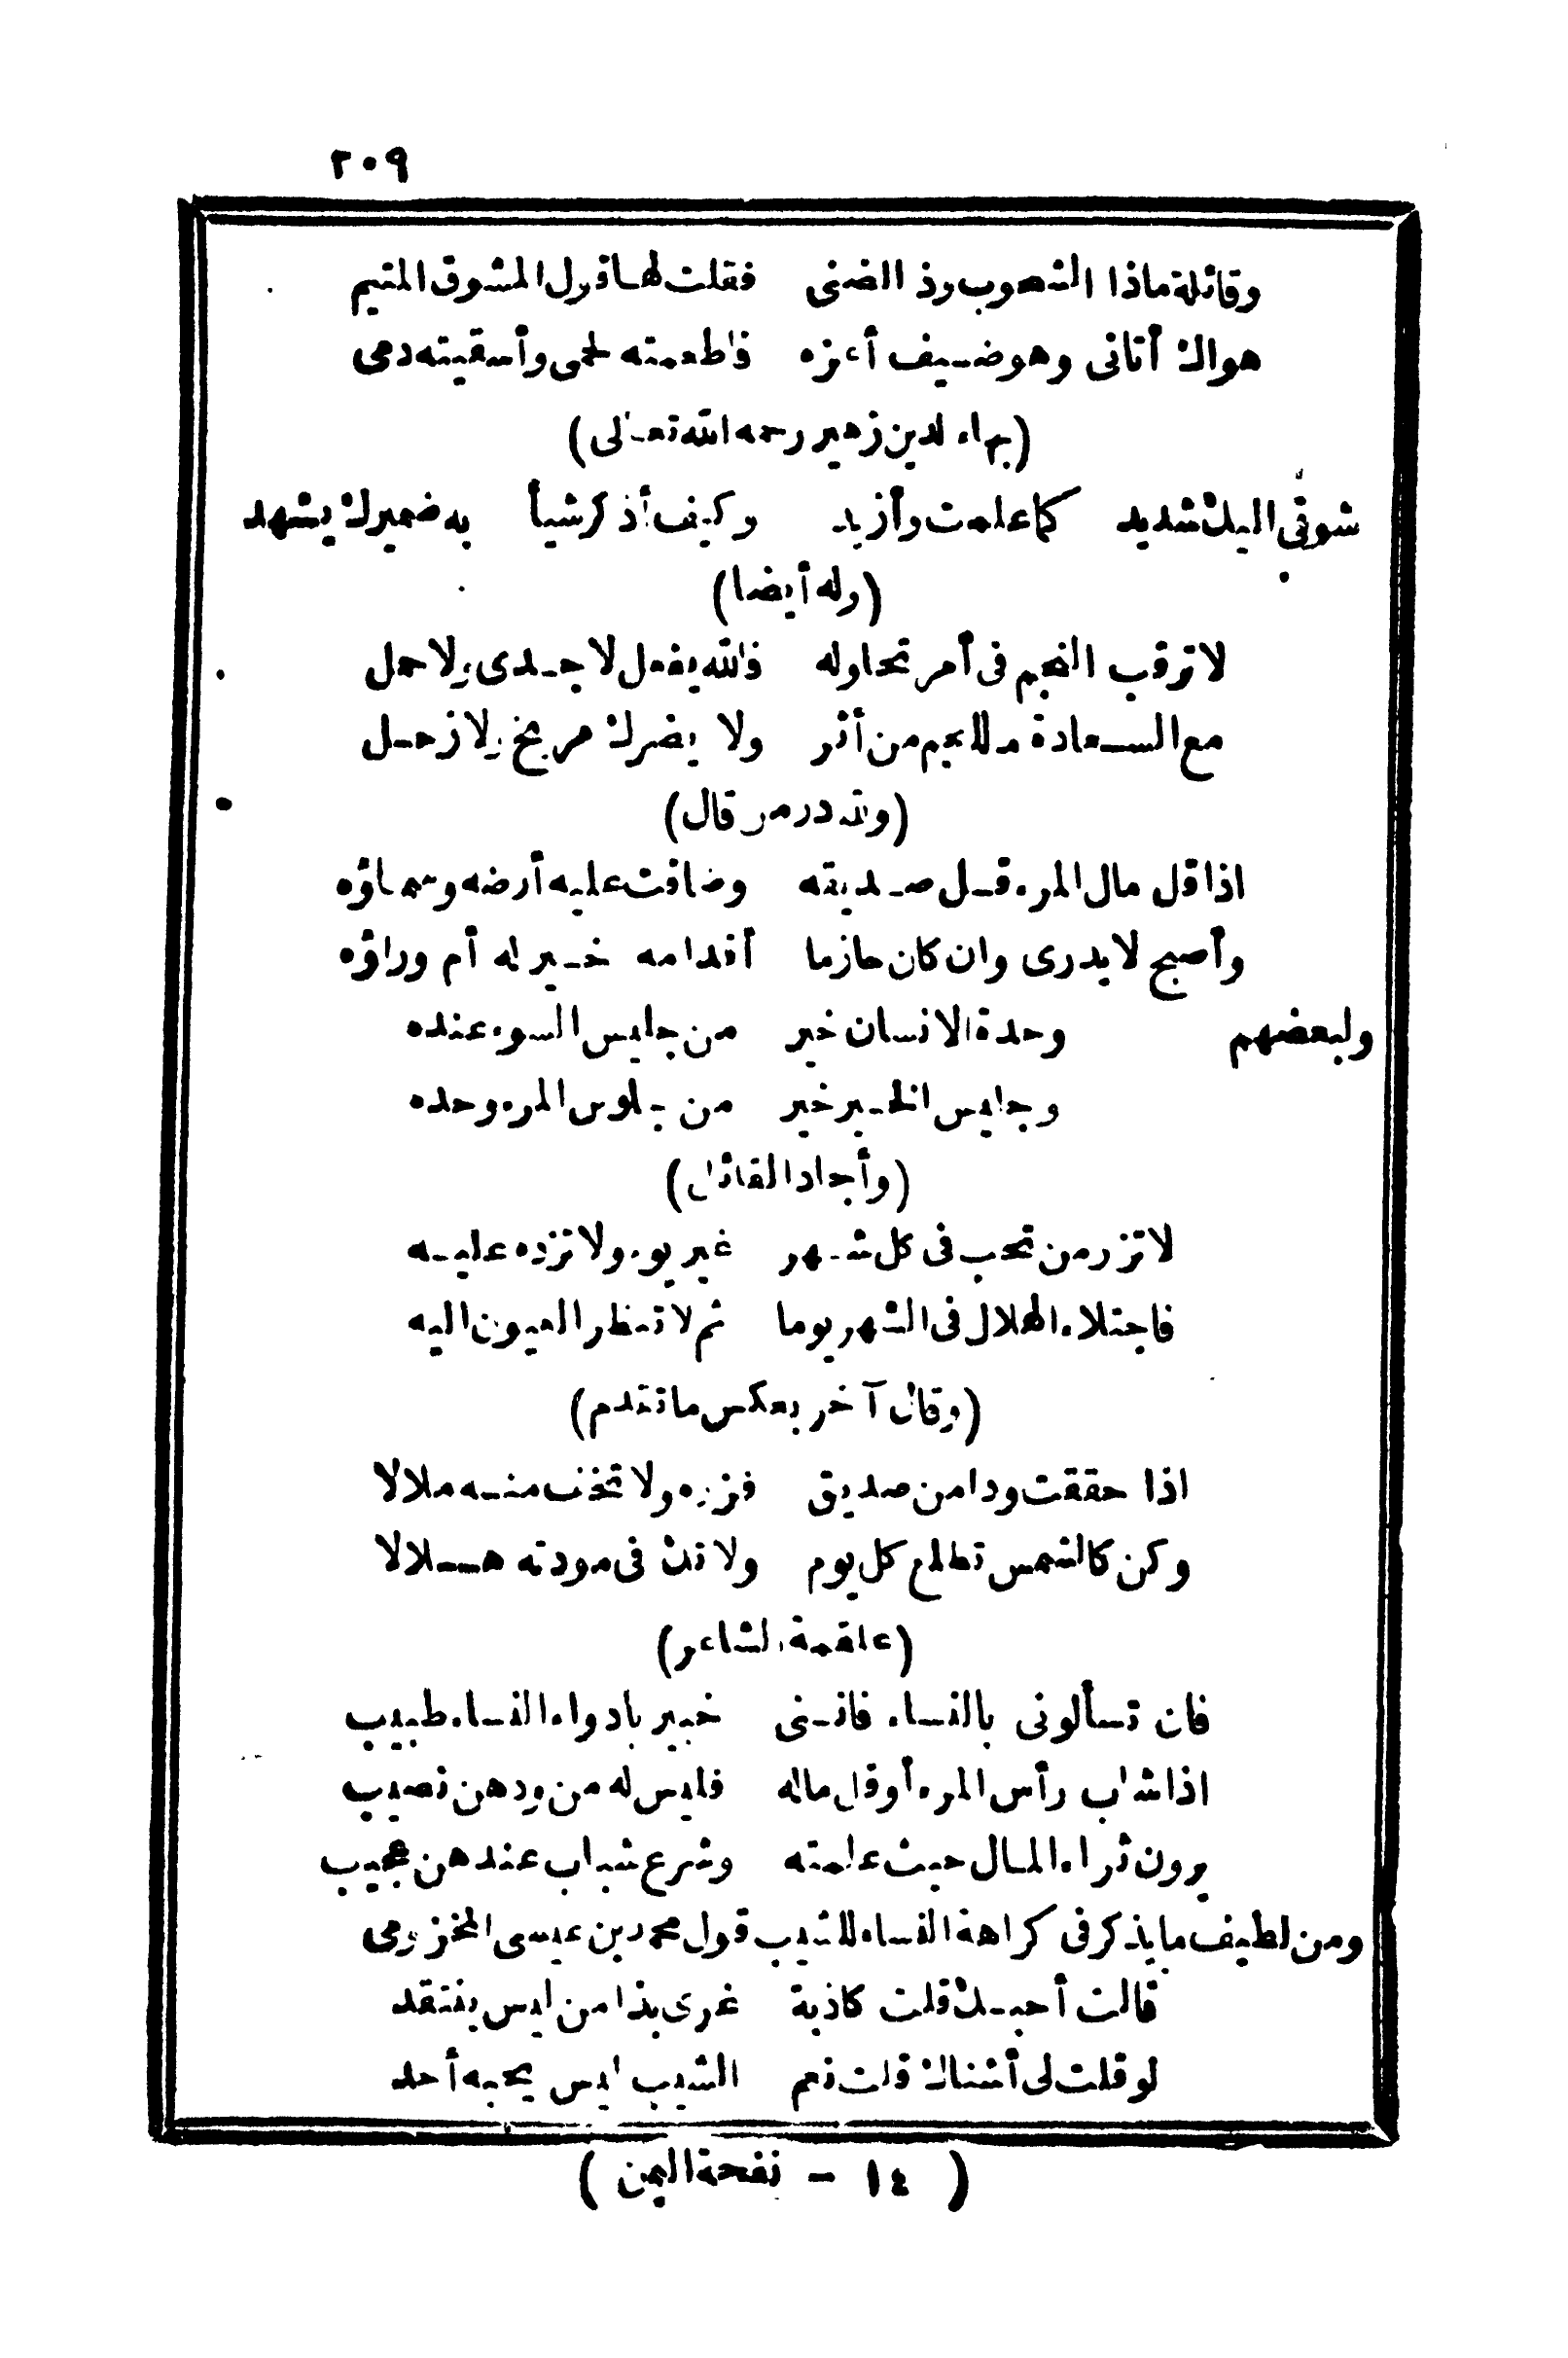 ٢٠٩
وقائلة ماذا الشحوب وذ الضنى فقلت لها قول المشوق المتيم
هواك أتانى وهو ضيف أعزه فأطعمته لحمى وأسقيته دمى
(بهاء الدين زهير رحمه الله تعالى)
شوقى اليك شديد كما علمت وأزيد وكيف أذكر شيأ به ضميرك يشهد
(وله أيضا)
لا ترقب النجم فى أمر تحاوله فالله يفعل لا جدى ولا حمل
مع السعادة ما للنجم من أثر ولا يضرك مريخ ولا زحل
(ولله در من قال)
اذا قل مال المرء قل صديقه وضاقت عليه أرضه وسماؤه
وأصبح لا يدرى وان كان حازما أقدامه خير له أم وراؤه
ولبعضهم وحدة الانسان خير من جليس السوء عنده
وجليس الخير خير من جلوس المرء وحده
(وأجاد القائل)
لا تزر من تحب فى كل شهر غير يوم ولا تزده عليه
فاجتلاء الهلال فى الشهر يوما ثم لا تنظر العيون اليه
(وقال آخر بعكس ما تقدم)
اذا حققت ودا من صديق فزره ولا تخف منه ملالا
وكن كالشمس تطلع كل يوم ولا تك فى مودته هلالا
(علقمة الشاعر)
فان تسألونى بالنساء فاننى خبير بادواء النساء طبيب
اذا شاب رأس المرء أو قل ماله فليس له من ودهن نصيب
يرون ثراء المال حيث علمته وشرع شباب عندهن عجيب
ومن لطيف ما يذكر فى كراهة النساء للشيب قول محمد بن عيسى المخزومى
قالت أحبك قلت كاذبة غرى بذا من ليس ينتقد
لو قلت لى أشناك قلت نعم الشيب ليس يحبه أحد
(١٤ - نفحة اليمن)